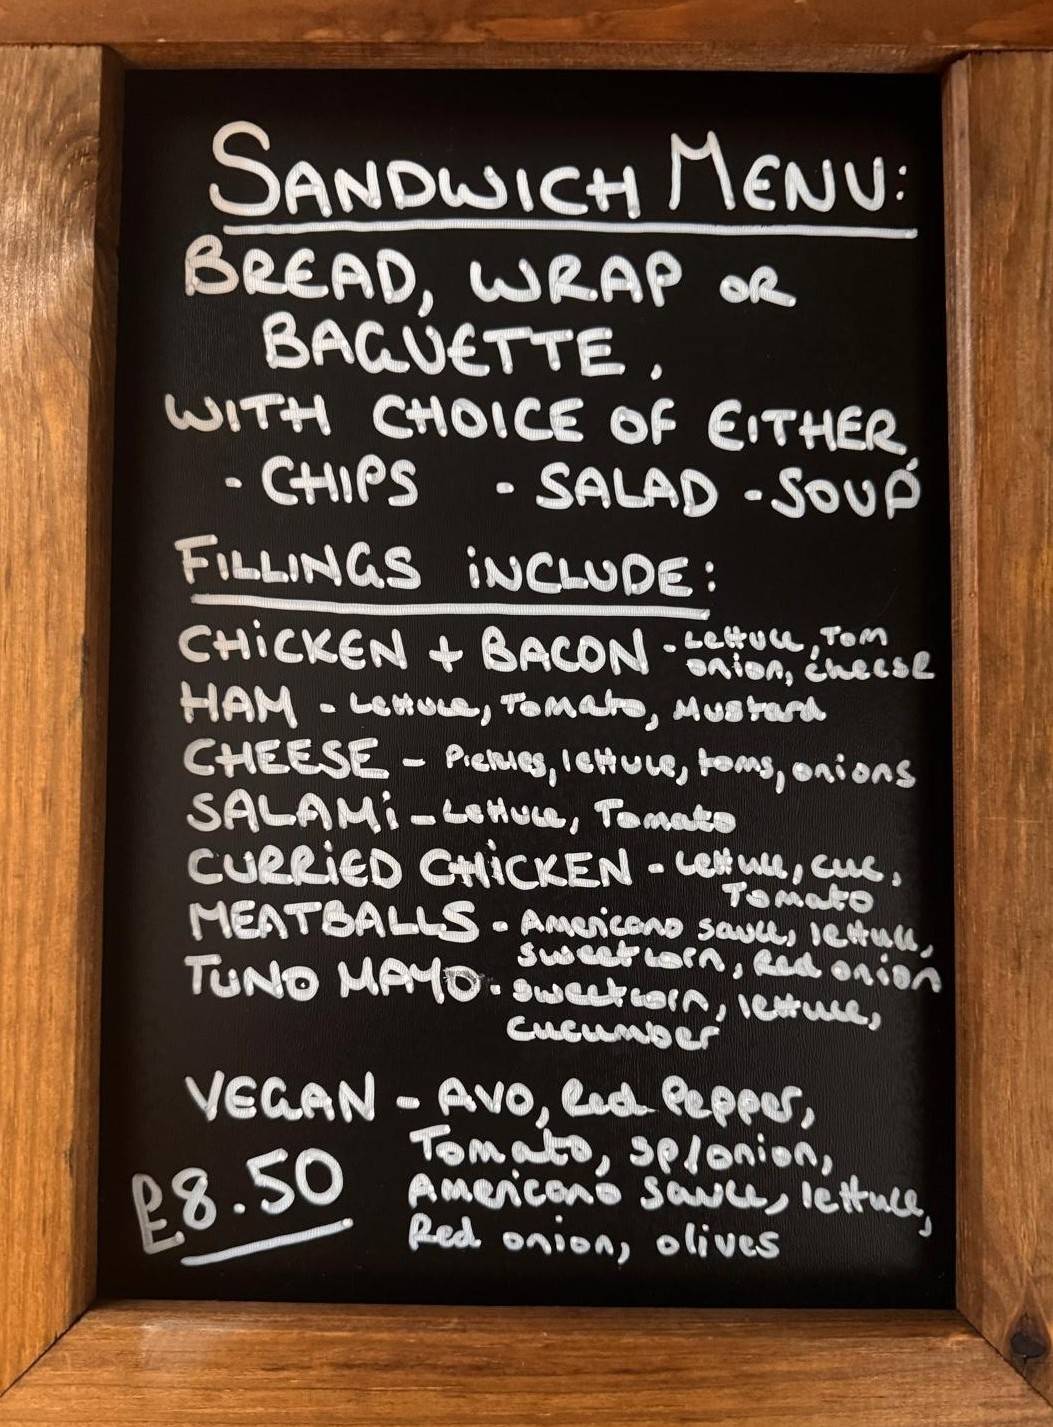 SANDWICH MENU:
BREAD, WRAP OR
BAGUETTE,
WITH CHOICE OF EITHER,
- CHIPS - SALAD - SOUP
FILLINGS INCLUDE:
CHICKEN + BACON - Lettuce, Tom
onion, cheese
HAM - Lettuce, Tomato, Mustard
CHEESE - Pickles, lettuce, toms, onions
SALAMI - Lettuce, Tomato
CURRIED CHICKEN - Lettuce, cuc,
Tomato
MEATBALLS - Americano sauce, lettuce,
sweetcorn, Red onion
TUNO MAYO - sweetcorn, lettuce,
cucumber
VEGAN - AVO, Red Pepper,
Tomato, sp/onion,
Americano sauce, lettuce,
Red onion, olives
£8.50